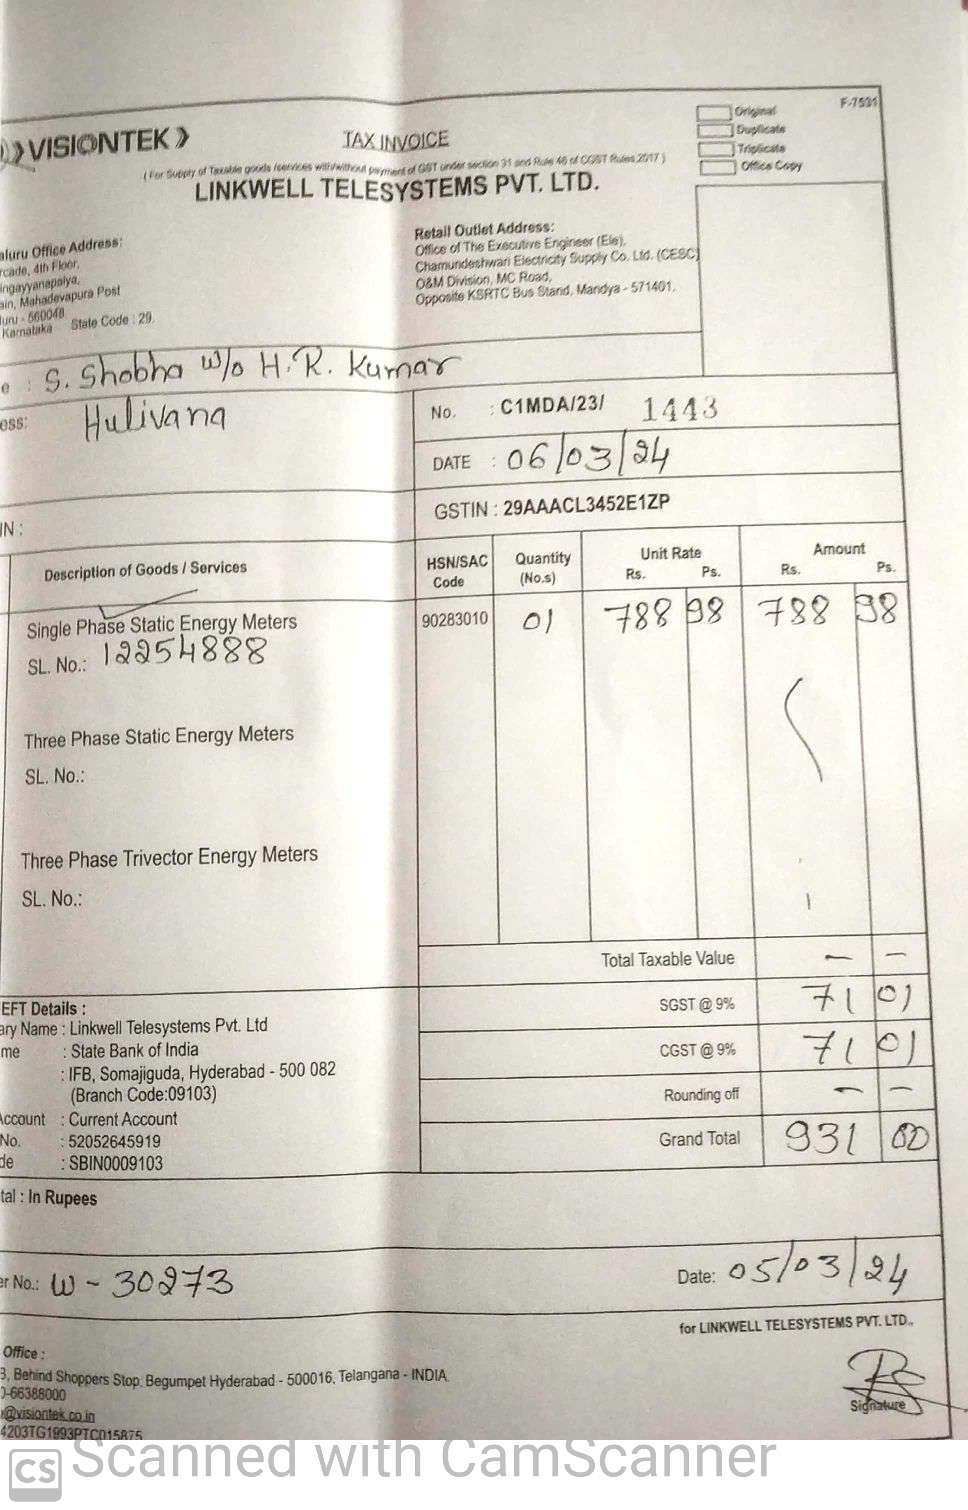 VISIONTEK
TAX INVOICE
Original
Duplicate
Triplicate
Office Copy
F-7531
( For Supply of Taxable goods /services with/without payment of GST under section 31 and Rule 46 of CGST Rules 2017 )
LINKWELL TELESYSTEMS PVT. LTD.
aluru Office Address:
rcade, 4th Floor,
ingayyanapalya,
ain, Mahadevapura Post
luru - 560048
Karnataka State Code : 29.
Retail Outlet Address:
Office of The Executive Engineer (Ele),
Chamundeshwari Electricity Supply Co. Ltd. (CESC)
O&M Division, MC Road,
Opposite KSRTC Bus Stand, Mandya - 571401.
e : S. Shobha w/o H.R. Kumar
ess: Hulivana
No. : C1MDA/23/ 1443
DATE : 06/03/24
GSTIN : 29AAACL3452E1ZP
IN :
Description of Goods / Services HSN/SAC Code Quantity (No.s) Unit Rate Rs. Ps. Amount Rs. Ps.
Single Phase Static Energy Meters 90283010 01 788 98 788 98
SL. No.: 12254888
Three Phase Static Energy Meters
SL. No.:
Three Phase Trivector Energy Meters
SL. No.:
Total Taxable Value — —
SGST @ 9% 71 01
CGST @ 9% 71 01
Rounding off — —
Grand Total 931 00
EFT Details :
ary Name : Linkwell Telesystems Pvt. Ltd
me : State Bank of India
: IFB, Somajiguda, Hyderabad - 500 082
(Branch Code:09103)
Account : Current Account
No. : 52052645919
de : SBIN0009103
tal : In Rupees
er No.: W - 30273
Date: 05/03/24
for LINKWELL TELESYSTEMS PVT. LTD.,
Signature
Office :
3, Behind Shoppers Stop, Begumpet Hyderabad - 500016, Telangana - INDIA.
0-66388000
@visiontek.co.in
4203TG1993PTC015875
CS Scanned with CamScanner